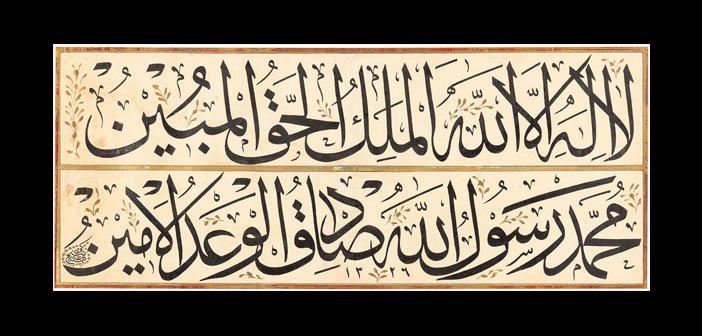 لا إله إلا الله الملك الحق المبين
محمد رسول الله صادق الوعد الأمين
١٣٢٦